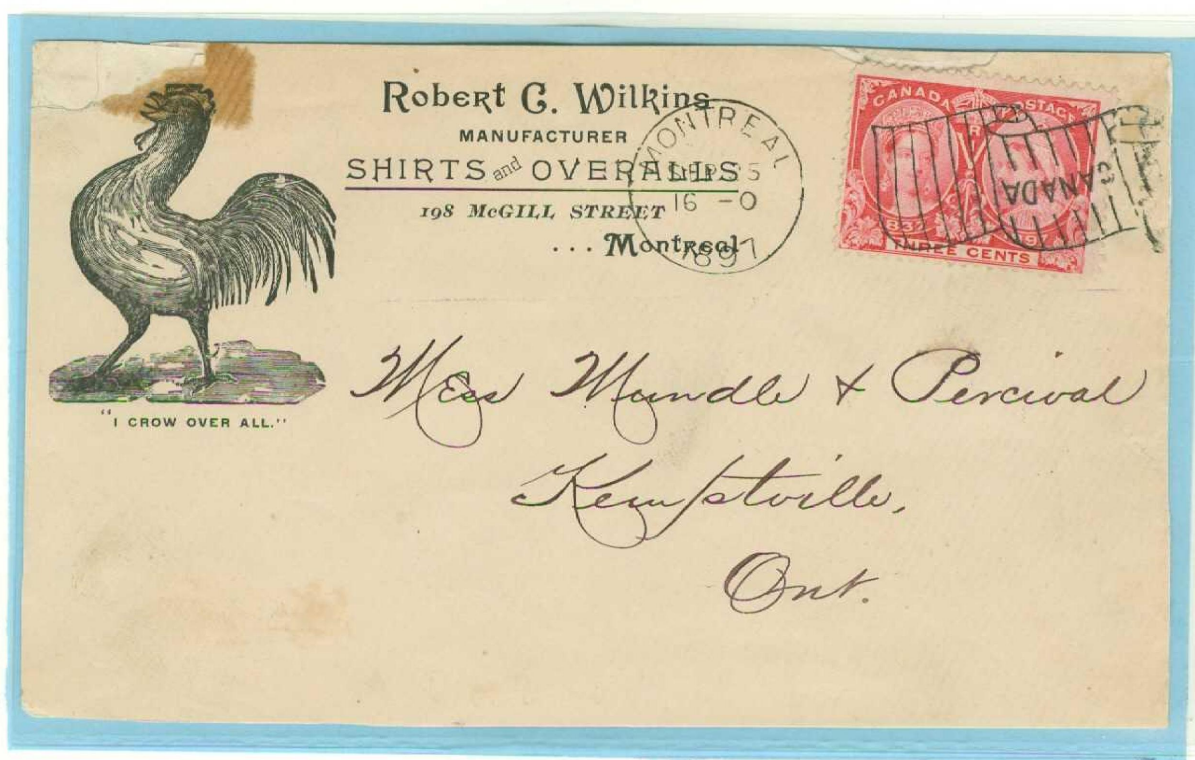 Robert C. Wilkins
MANUFACTURER
SHIRTS and OVERALLS
198 McGILL STREET
... Montreal
"I CROW OVER ALL."
MONTREAL
16 - 0
1897
CANADA POSTAGE
THREE CENTS
CANADA
Mess Mundle & Percival
Kemptville,
Ont.